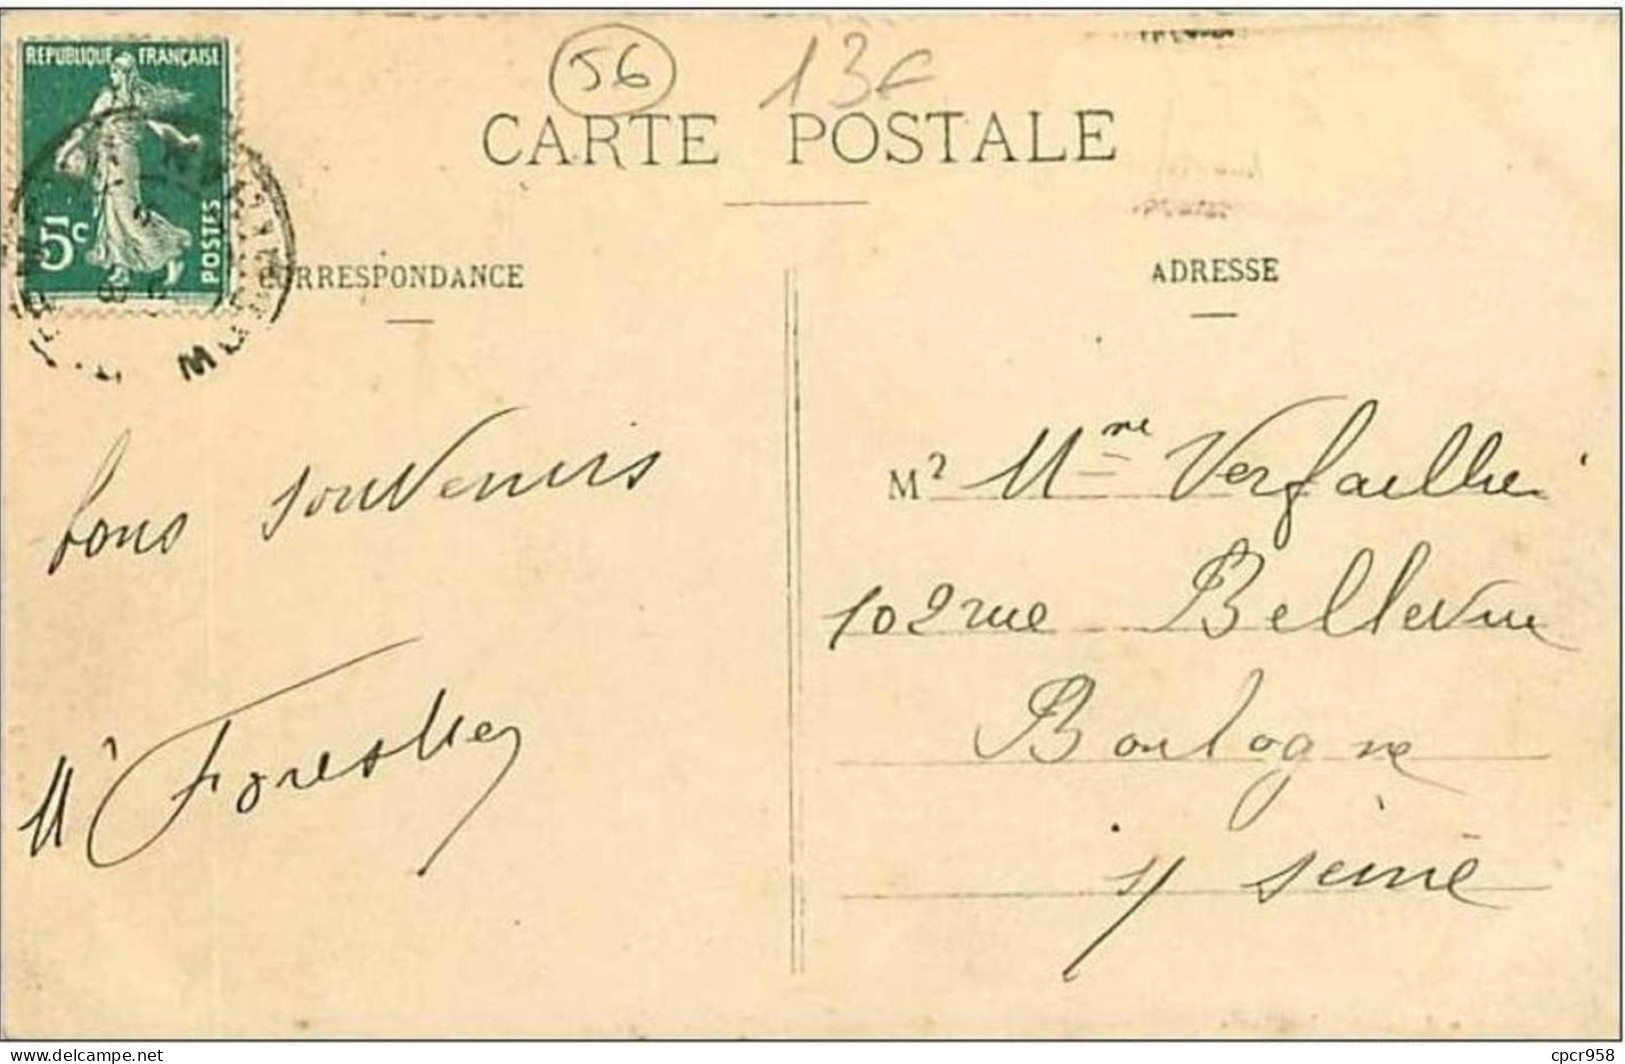 REPUBLIQUE FRANÇAISE
5c
POSTES
56
13€
CARTE POSTALE
CORRESPONDANCE
ADRESSE
bons souvenirs
M
M Mme Verfaillie
102 rue Bellevue
Boulogne
s/ Seine
cpcr958